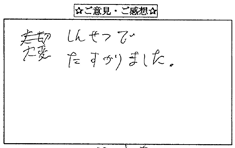 ☆ご意見・ご感想☆
しんせつで
大変 たすかりました。